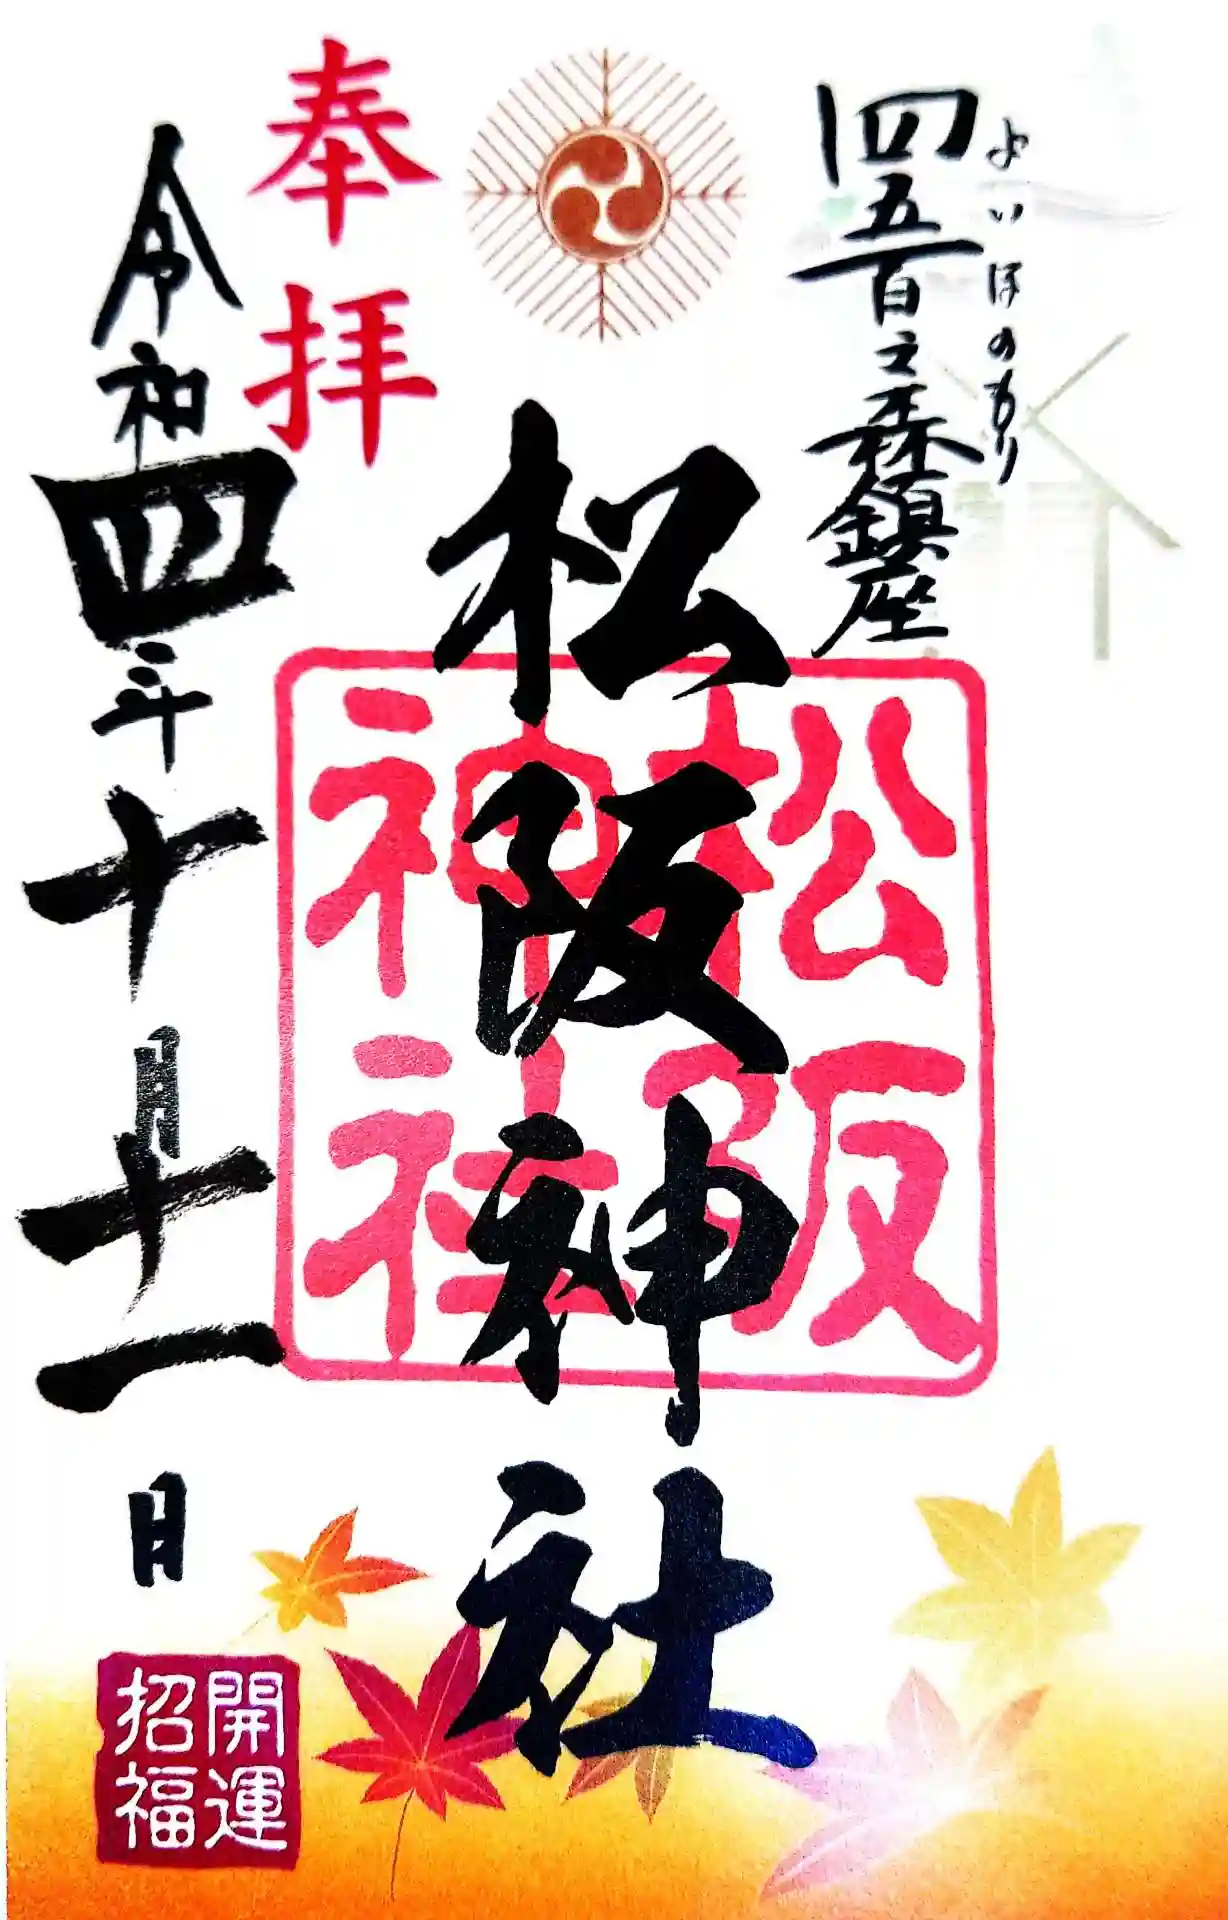 四五百之森鎮座
よいほのもり
松阪神社
松阪
神社
奉拝
令和四年十月十一日
開運
招福